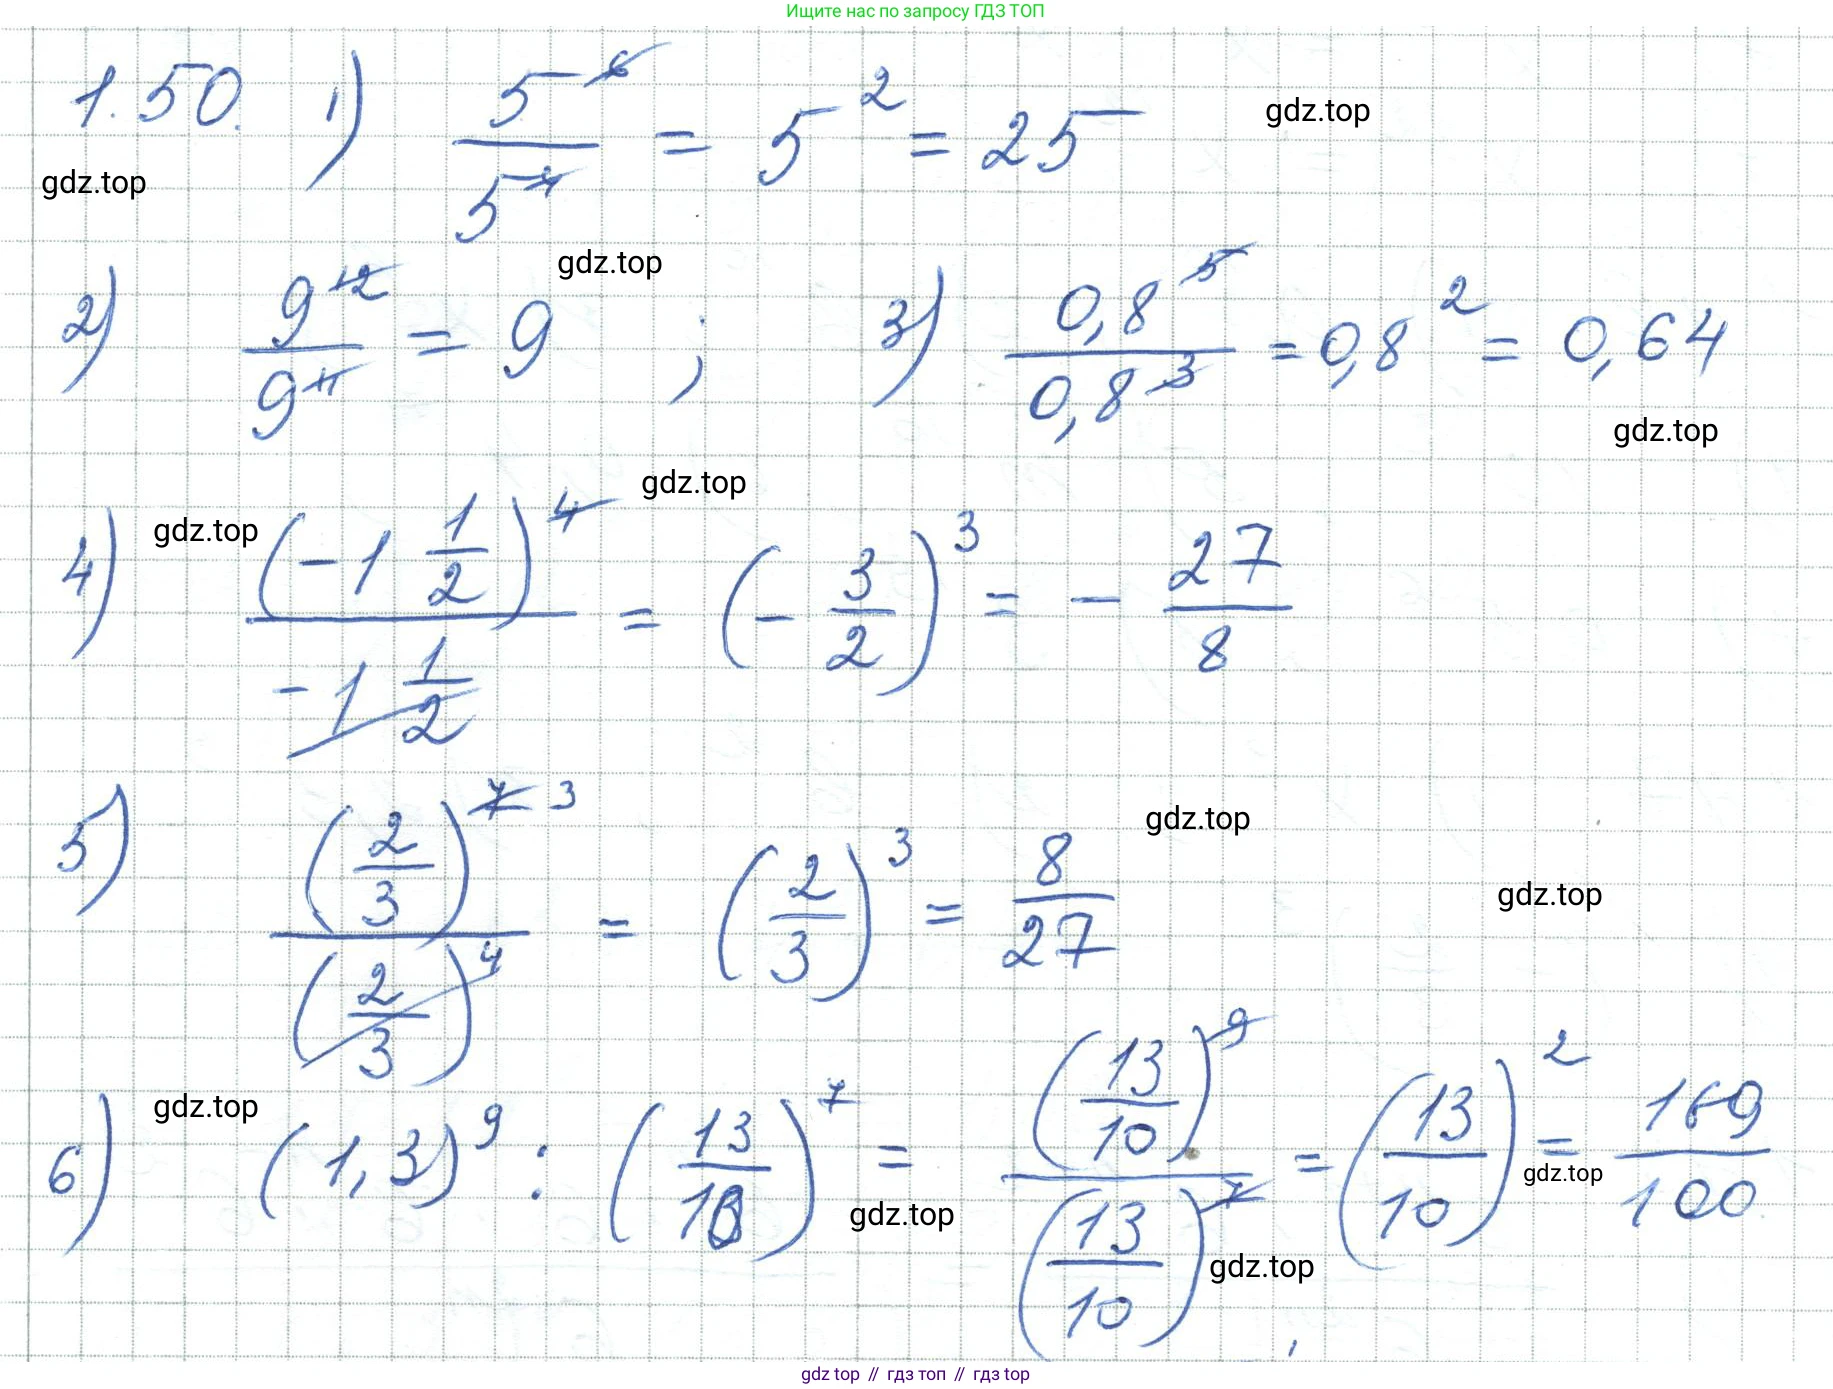 Ищите нас по запросу ГДЗ ТОП
1.50. 1) 5^6 / 5^4 = 5^2 = 25
gdz.top
gdz.top
gdz.top
2) 9^12 / 9^11 = 9 ; 3) 0,8^5 / 0,8^3 = 0,8^2 = 0,64
gdz.top
gdz.top
gdz.top
4) (-1 1/2)^4 / -1 1/2 = (- 3/2)^3 = - 27/8
5) (2/3)^7 3 / (2/3)^4 = (2/3)^3 = 8/27
gdz.top
gdz.top
gdz.top
6) (1,3)^9 : (13/10)^7 = (13/10)^9 / (13/10)^7 = (13/10)^2 = 169/100
gdz.top
gdz.top
gdz.top
gdz top // гдз топ // gdz top